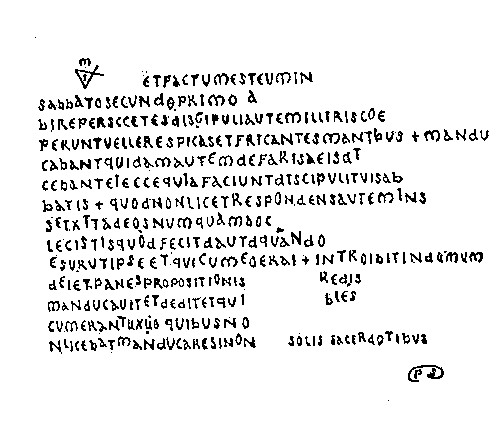 ETFACTUMESTEUMIN
SABBATOSECUNDOPRIMO A
BIREPERSCCETESDISCIPULIAUTEMILLIRISCOE
PERUNTUELLERESPICASETFRICANTESMANIBUS + MANDU
CABANTQUIDAMAUTEMDEFARISAEISDT
CEBANTEIECCEQUIAFACIUNTDISCIPULITUISAB
BATIS + QUODNONLICETRESPONDENSAUTEMINS
LECISTISQUODFECITDAUTDQUANDO
ESURUTIPSEETQUICUMEOERAI + INTROIBITINDOMUM
DEIETPANESPROPOSITIONIS REDIS
MANDUCAUITETDEDITETQUI BLES
CUMERANTUXIIS QUIBUSNO
NLICEBATMANDUCARESINON SOLIS SACERDOTIBUS
PS